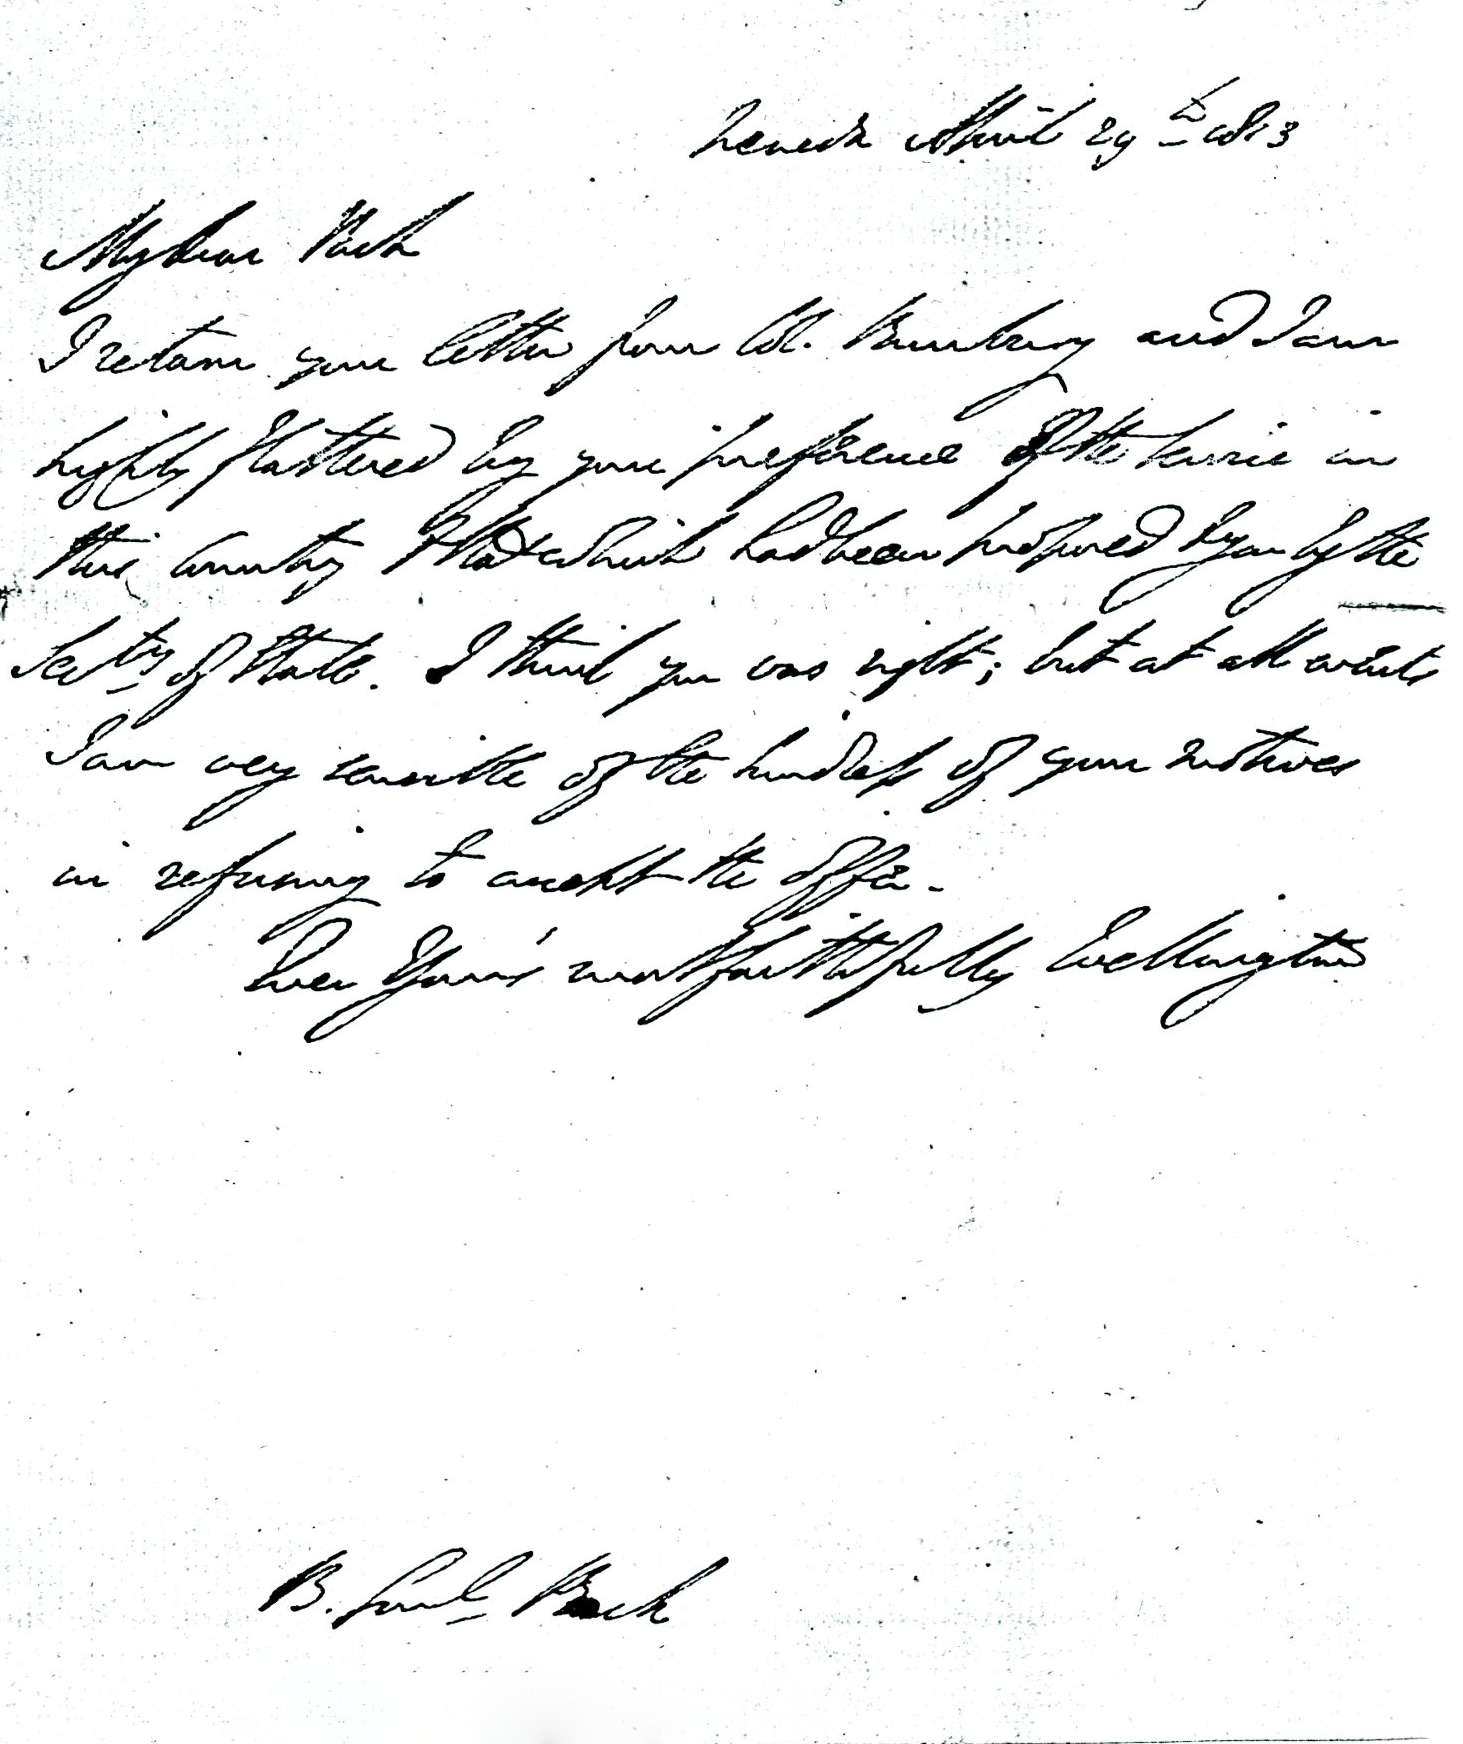 Freneda April 29th 1813
My dear Pack
I return your letter from Col. Bunbury and I am
highly flattered by your preference of the service in
this Country to that which had been proposed to you by the
Secty of State. I think you was right; but at all events
I am very sensible of the kindness of your motives
in refusing to accept the offer.
Ever Yours most faithfully Wellington
B. Genl Pack